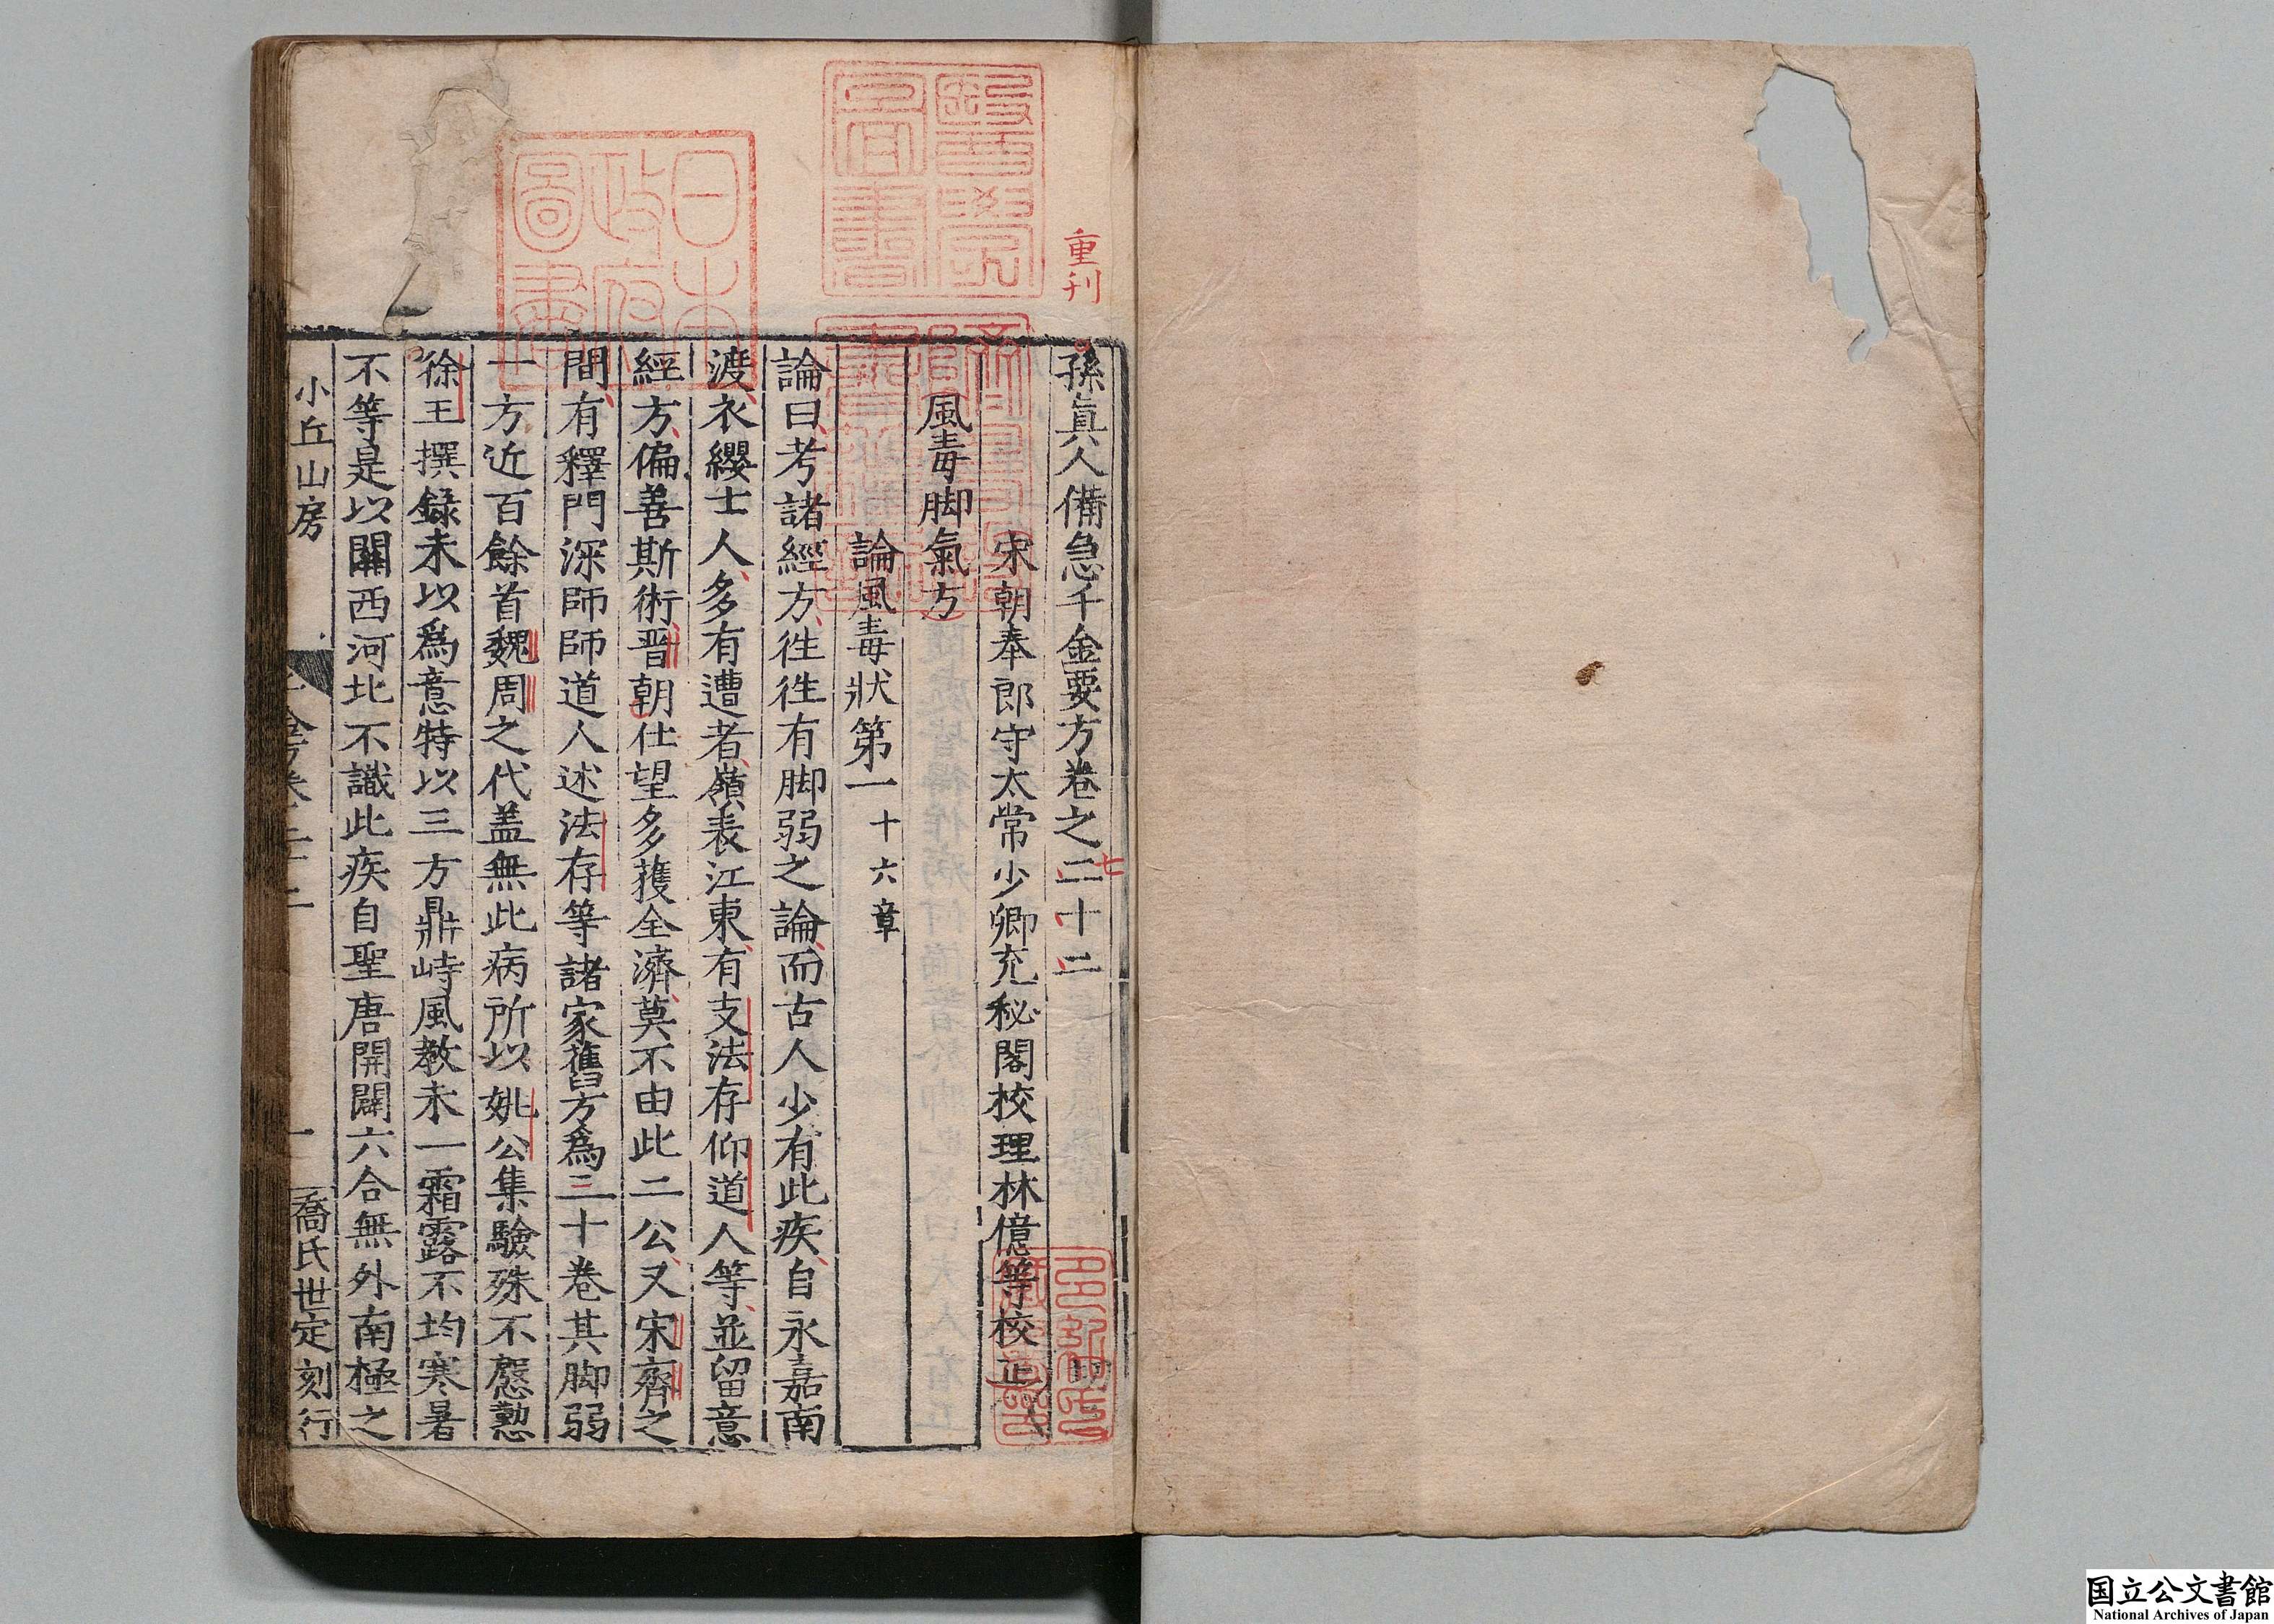 重刊
孫眞人備急千金要方卷之二十二
七
宋朝奉郎守太常少卿充秘閣校理林億等校正
風毒脚氣方
論風毒狀第一十六章
論曰考諸經方徃徃有脚弱之論而古人少有此疾自永嘉南
渡衣纓士人多有遭者嶺表江東有支法存仰道人等並留意
經方偏善斯術晋朝仕望多獲全濟莫不由此二公又宋齊之
間有釋門深師師道人述法存等諸家舊方爲三十卷其脚弱
一方近百餘首魏周之代盖無此病所以姚公集驗殊不慇懃
徐王撰録未以爲意特以三方鼎峙風教未一霜露不均寒暑
不等是以關西河北不識此疾自聖唐開闢六合無外南極之
小丘山房
千金方卷二十二
一
喬氏世定刻行
日本政府圖書
醫學圖書
国立公文書館
National Archives of Japan